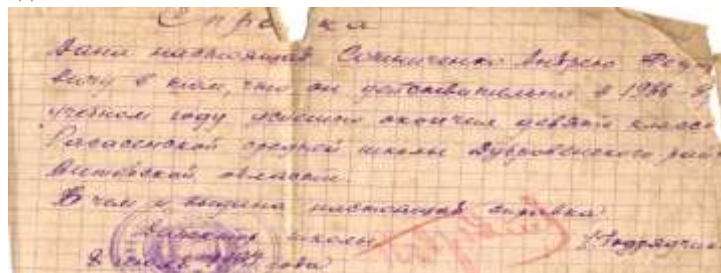 Справка
Дана настоящая Сотниченко Андрею Фед
вичу в том, что он действительно в 1966
учебном году успешно окончил девять классов
Расасенской средней школы Дубровенского рай
Витебской области.
В чем и выдана настоящая справка
Директор школы /Подрядчик
8 года